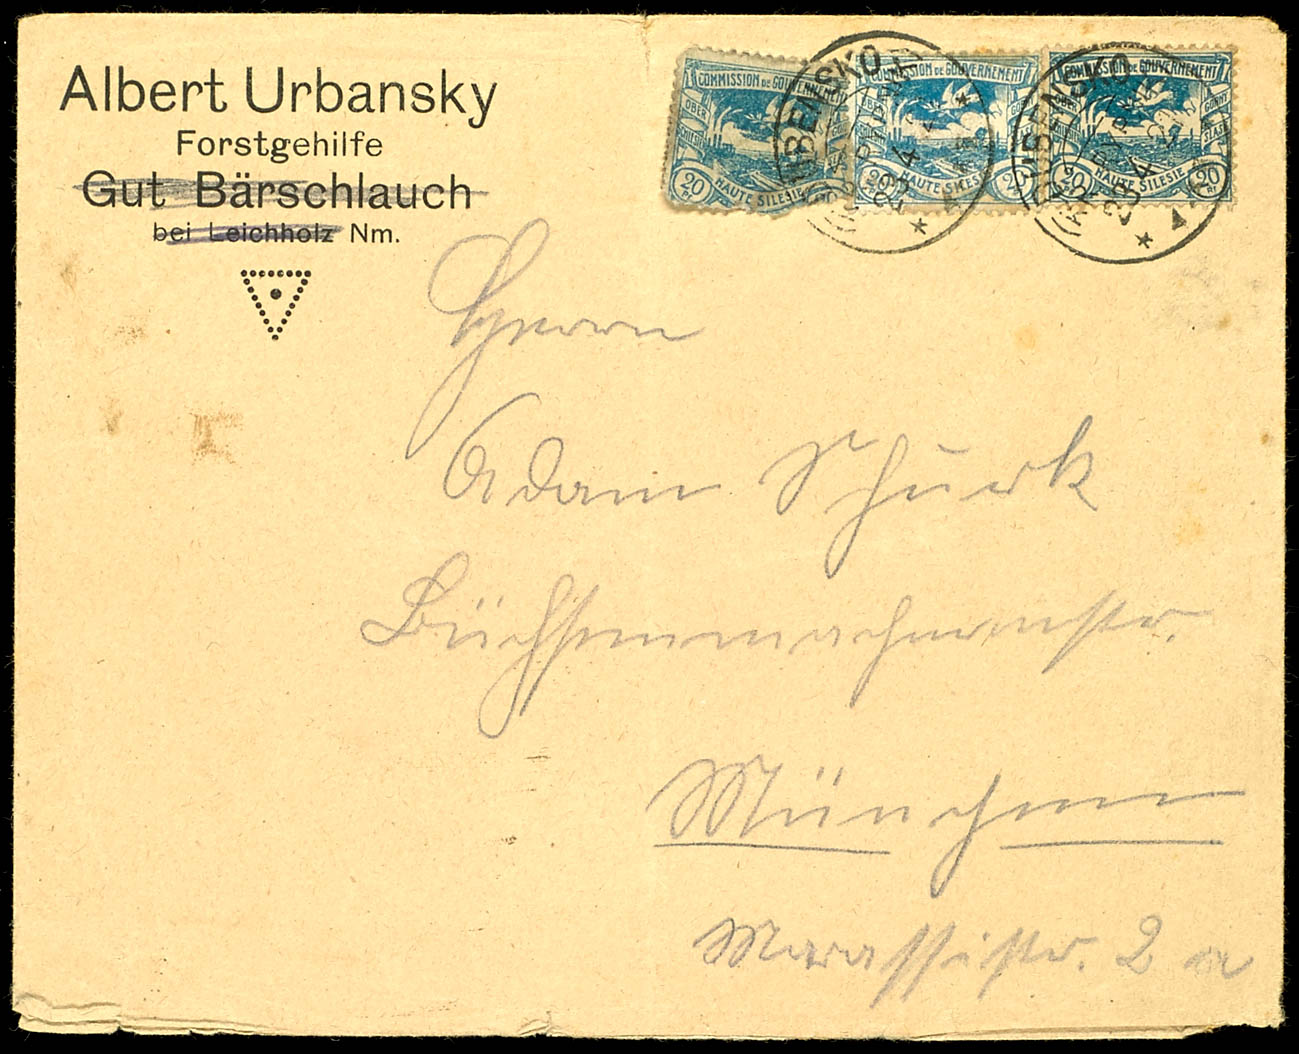 Albert Urbansky
Forstgehilfe
Gut Bärschlauch
bei Leichholz Nm.
COMMISSION DE GOUVERNEMENT
HAUTE SILESIE
20
COMMISSION DE GOUVERNEMENT
HAUTE SILESIE
20
COMMISSION DE GOUVERNEMENT
OBER
HAUTE SILESIE
20 20
Herrn
Adam Schurk
Büchsenmachermstr.
München
Marsstr. 2 a